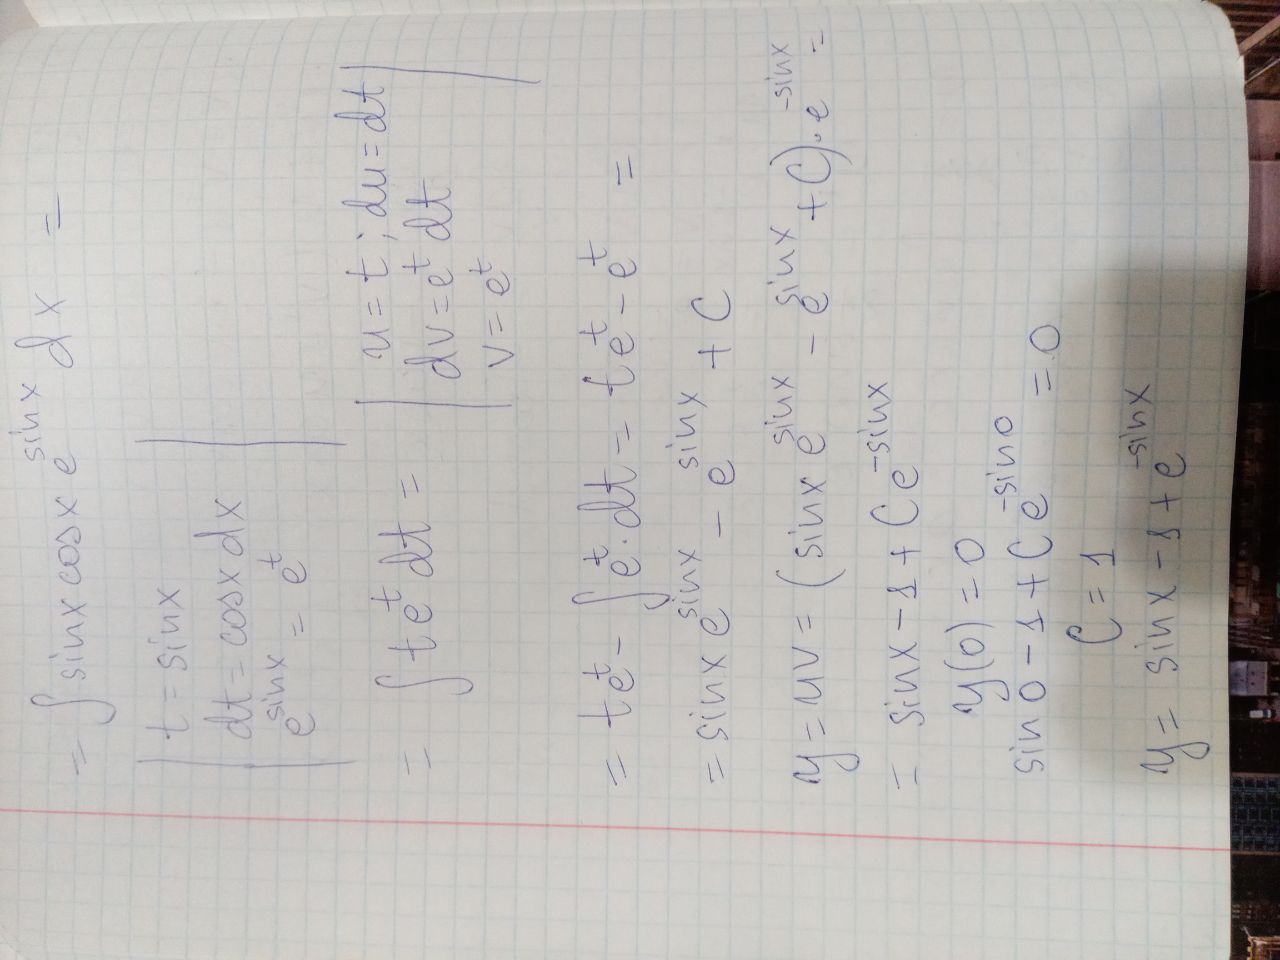 = ∫ sinx cosx e^sinx dx =
| t = sinx |
| dt = cosx dx |
| e^sinx = e^t |
= ∫ t e^t dt = | u = t ; du = dt |
| dv = e^t dt |
| v = e^t |
= te^t - ∫ e^t · dt = te^t - e^t =
= sinx e^sinx - e^sinx + C
y = uv = (sinx e^sinx - e^sinx + C) · e^-sinx =
= sinx - 1 + C e^-sinx
y(0) = 0
sin 0 - 1 + C e^-sin0 = 0
C = 1
y = sinx - 1 + e^-sinx